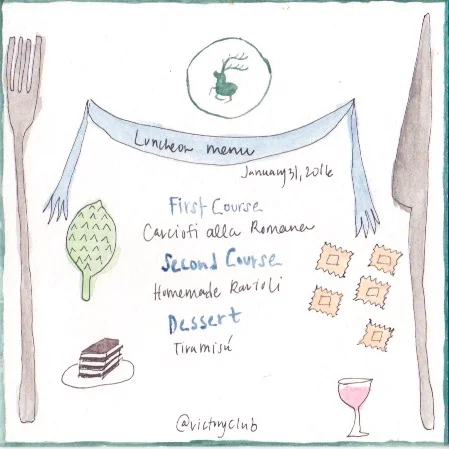 Luncheon menu
January 31, 2016
First Course
Carciofi alla Romana
Second Course
Homemade Ravioli
Dessert
Tiramisú
@victoryclub